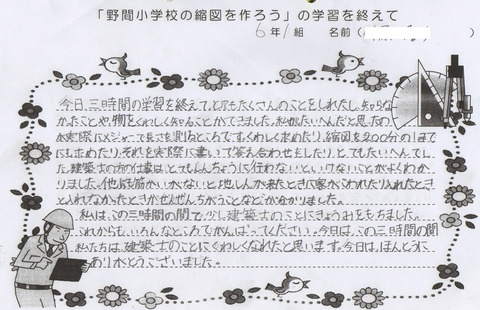 「野間小学校の縮図を作ろう」の学習を終えて
6年1組 名前( )
今日、三時間の学習を終えて、とてもたくさんのことをしれたし、しらな
かたことや、物をくわしくしることができました。私がたいへんだと思ったの
が実際にメジャーで長さを測るところです。くわしく求めたり、縮図を200分の1まで
にも求めたり、それを実際に書いて答え合わせもしたり、とてもたいへんでし
た。建築士の方の仕事は、とてもしんちょうに行わないといけないことがよくわか
りました。他にも筋かいがないと地しんが来たときに家がこわれたり、入れたとき
と入れなかったときがぜんぜんちがうことなどが分かりました。
私は、この三時間の間で、少し建築士のことにきょうみをもちました。
これからも、いろんなところでがんばってください。今日は、この三時間の間
私たちは、建築士のことにくわしくなれたと思います。今日は、ほんとうに
ありがとうございました。